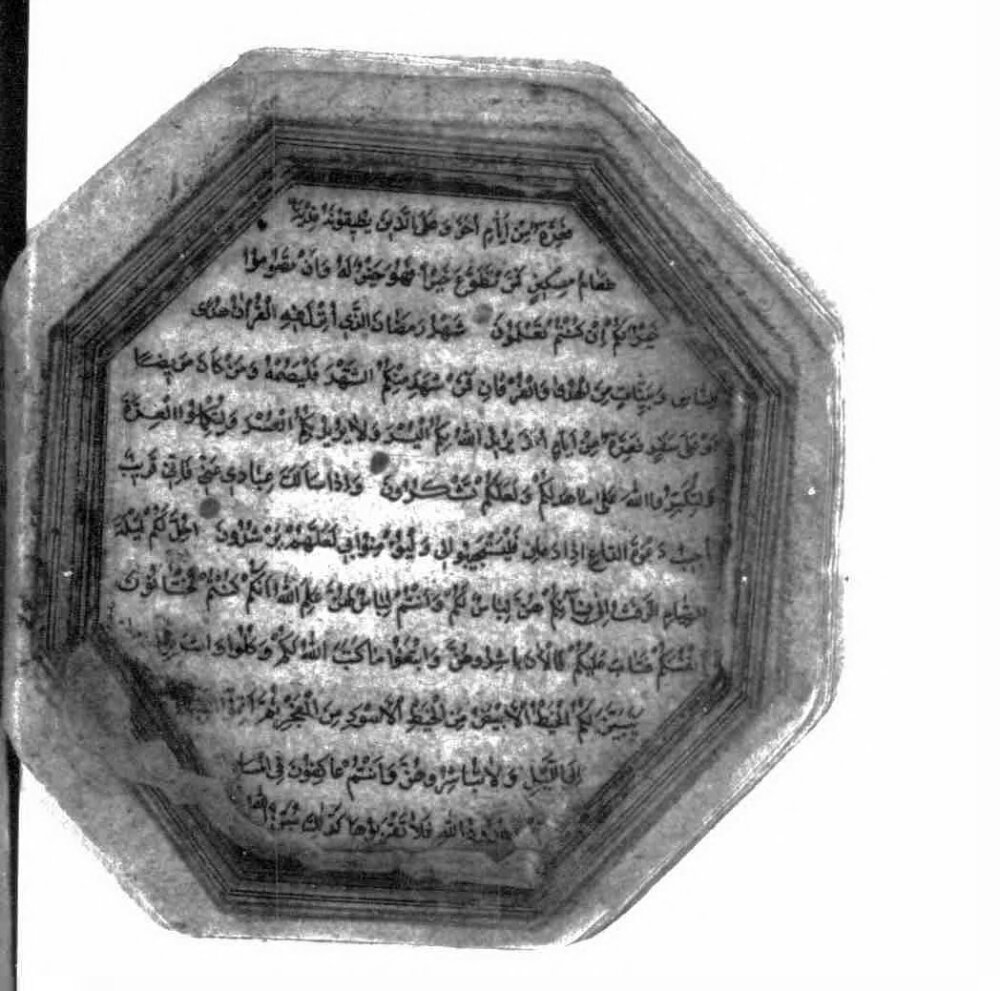 فَعِدَّةٌ مِنْ اَيَّامٍ اُخَرَ وَعَلَى الَّذِينَ يُطِيقُونَهُ فِدْيَةٌ
طَعَامُ مِسْكِينٍ فَمَنْ تَطَوَّعَ خَيْرًا فَهُوَ خَيْرٌ لَهُ وَاَنْ تَصُومُوا
خَيْرٌ لَكُمْ اِنْ كُنْتُمْ تَعْلَمُونَ شَهْرُ رَمَضَانَ الَّذِى اُنْزِلَ فِيهِ الْقُرْاٰنُ هُدًى
لِلنَّاسِ وَبَيِّنَاتٍ مِنَ الْهُدٰى وَالْفُرْقَانِ فَمَنْ شَهِدَ مِنْكُمُ الشَّهْرَ فَلْيَصُمْهُ وَمَنْ كَانَ مَرِيضًا
اَوْ عَلٰى سَفَرٍ فَعِدَّةٌ مِنْ اَيَّامٍ اُخَرَ يُرِيدُ اللّٰهُ بِكُمُ الْيُسْرَ وَلَا يُرِيدُ بِكُمُ الْعُسْرَ وَلِتُكْمِلُوا الْعِدَّةَ
وَلِتُكَبِّرُوا اللّٰهَ عَلٰى مَا هَدٰيكُمْ وَلَعَلَّكُمْ تَشْكُرُونَ وَاِذَا سَاَلَكَ عِبَادِى عَنِّى فَاِنِّى قَرِيبٌ
اُجِيبُ دَعْوَةَ الدَّاعِ اِذَا دَعَانِ فَلْيَسْتَجِيبُوا لِى وَلْيُؤْمِنُوا بِى لَعَلَّهُمْ يَرْشُدُونَ اُحِلَّ لَكُمْ لَيْلَةَ
الصِّيَامِ الرَّفَثُ اِلٰى نِسَآئِكُمْ هُنَّ لِبَاسٌ لَكُمْ وَاَنْتُمْ لِبَاسٌ لَهُنَّ عَلِمَ اللّٰهُ اَنَّكُمْ كُنْتُمْ تَخْتَانُونَ
اَنْفُسَكُمْ فَتَابَ عَلَيْكُمْ فَالْاٰنَ بَاشِرُوهُنَّ وَابْتَغُوا مَا كَتَبَ اللّٰهُ لَكُمْ وَكُلُوا وَاشْرَبُوا
يَتَبَيَّنَ لَكُمُ الْخَيْطُ الْاَبْيَضُ مِنَ الْخَيْطِ الْاَسْوَدِ مِنَ الْفَجْرِ ثُمَّ
اِلَى اللَّيْلِ وَلَا تُبَاشِرُوهُنَّ وَاَنْتُمْ عَاكِفُونَ فِى الْمَسَا
اللّٰهِ فَلَا تَقْرَبُوهَا كَذٰلِكَ